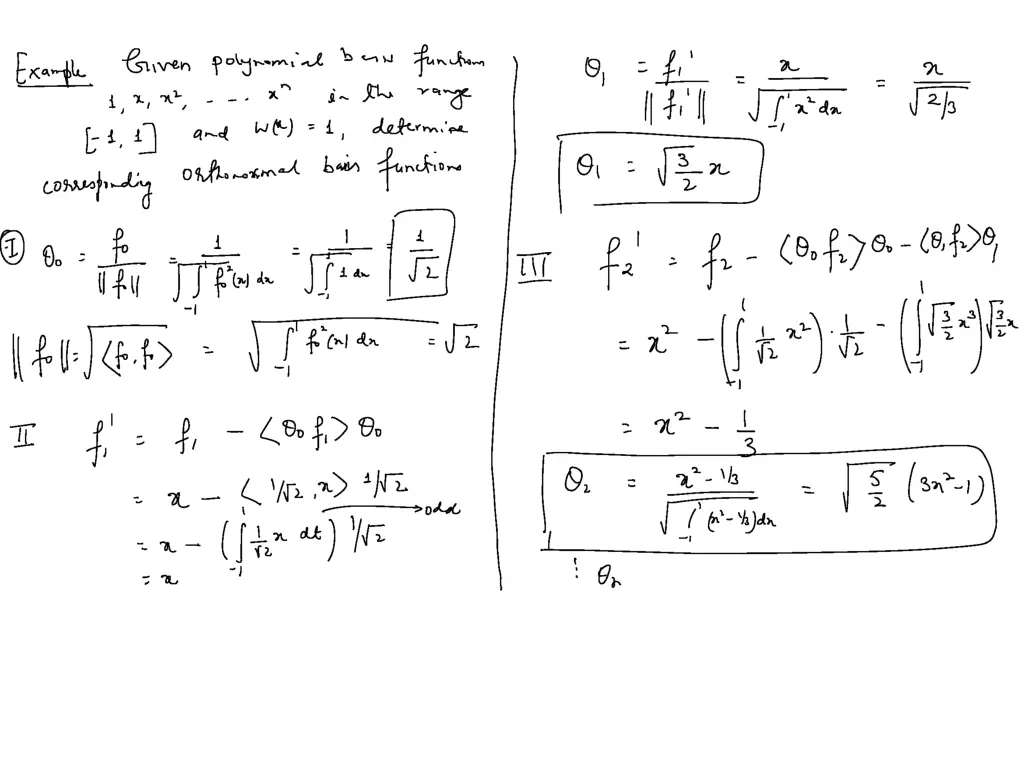 Example Given polynomial basis functions
1, x, x², ---- xⁿ in the range
[-1, 1] and w(x) = 1, determine
corresponding orthonormal basis functions
I θ₀ = f₀ / ||f₀|| = 1 / √(∫₋₁¹ f₀²(x) dx) = 1 / √(∫₋₁¹ 1 dx) = 1/√2
||f₀|| = √⟨f₀, f₀⟩ = √(∫₋₁¹ f₀²(x) dx) = √2
II f₁' = f₁ - <θ₀ f₁> θ₀
= x - < 1/√2, x> 1/√2
→ odd
= x - (∫₋₁¹ 1/√2 x dt) 1/√2
= x
θ₁ = f₁' / ||f₁'|| = x / √(∫₋₁¹ x² dx) = x / √(2/3)
θ₁ = √(3/2) x
III f₂' = f₂ - <θ₀ f₂> θ₀ - <θ₁ f₂> θ₁
= x² - (∫₋₁¹ 1/√2 x²) · 1/√2 - (∫₋₁¹ √(3/2) x³) √(3/2) x
= x² - 1/3
θ₂ = (x² - 1/3) / √(∫₋₁¹ (x² - 1/3) dx) = √(5/2) (3x² - 1)
⋮ θₙ